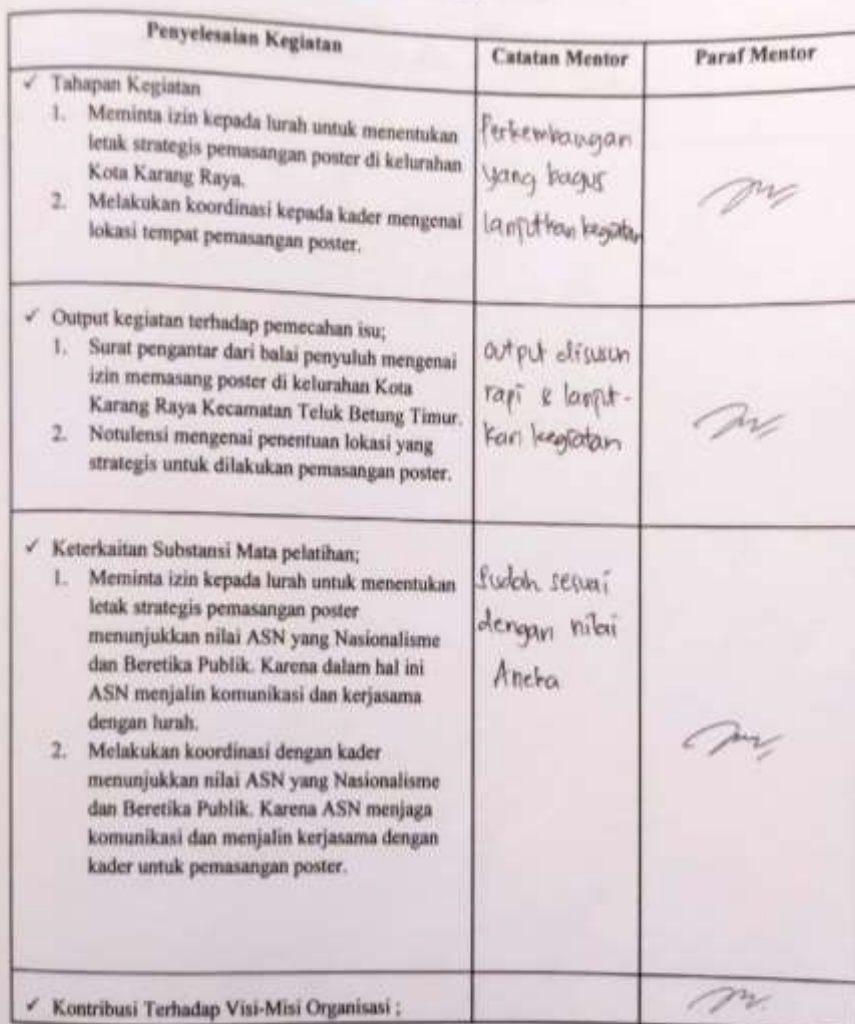 Penyelesaian Kegiatan
Catatan Mentor
Paraf Mentor
✓ Tahapan Kegiatan
1. Meminta izin kepada lurah untuk menentukan
letak strategis pemasangan poster di kelurahan
Kota Karang Raya.
2. Melakukan koordinasi kepada kader mengenai
lokasi tempat pemasangan poster.
Perkembangan
yang bagus
lanjutkan kegiatan
✓ Output kegiatan terhadap pemecahan isu;
1. Surat pengantar dari balai penyuluh mengenai
izin memasang poster di kelurahan Kota
Karang Raya Kecamatan Teluk Betung Timur.
2. Notulensi mengenai penentuan lokasi yang
strategis untuk dilakukan pemasangan poster.
output disusun
rapi & lanjut-
kan kegiatan
✓ Keterkaitan Substansi Mata pelatihan;
1. Meminta izin kepada lurah untuk menentukan
letak strategis pemasangan poster
menunjukkan nilai ASN yang Nasionalisme
dan Beretika Publik. Karena dalam hal ini
ASN menjalin komunikasi dan kerjasama
dengan lurah.
2. Melakukan koordinasi dengan kader
menunjukkan nilai ASN yang Nasionalisme
dan Beretika Publik. Karena ASN menjaga
komunikasi dan menjalin kerjasama dengan
kader untuk pemasangan poster.
Sudah sesuai
dengan nilai
Aneka
✓ Kontribusi Terhadap Visi-Misi Organisasi ;